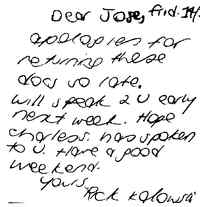 Dear Jose, frid. 14/
apologies for
returning these
docs so late.
Will speak 2 U early
next week. Hope
charless. has spoken
to U. Have a good
weekend.
Yours,
Rick Kolowski